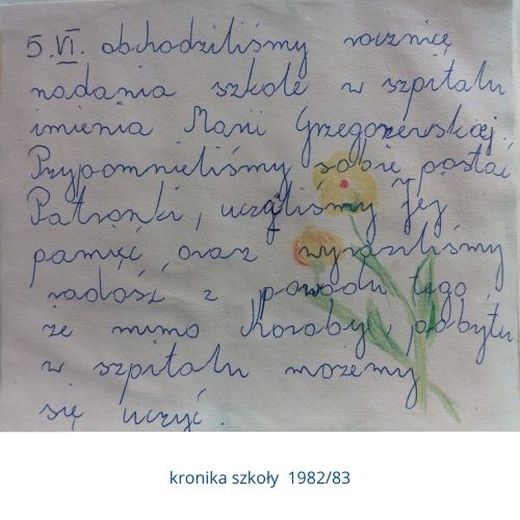 5.VI. obchodziliśmy rocznicę
nadania szkole w szpitalu
imienia Marii Grzegorzewskiej.
Przypomnieliśmy sobie postać
Patronki, uczciliśmy jej
pamięć, oraz wyraziliśmy
radość z powodu tego,
że mimo choroby, pobytu
w szpitalu możemy
się uczyć.
kronika szkoły 1982/83